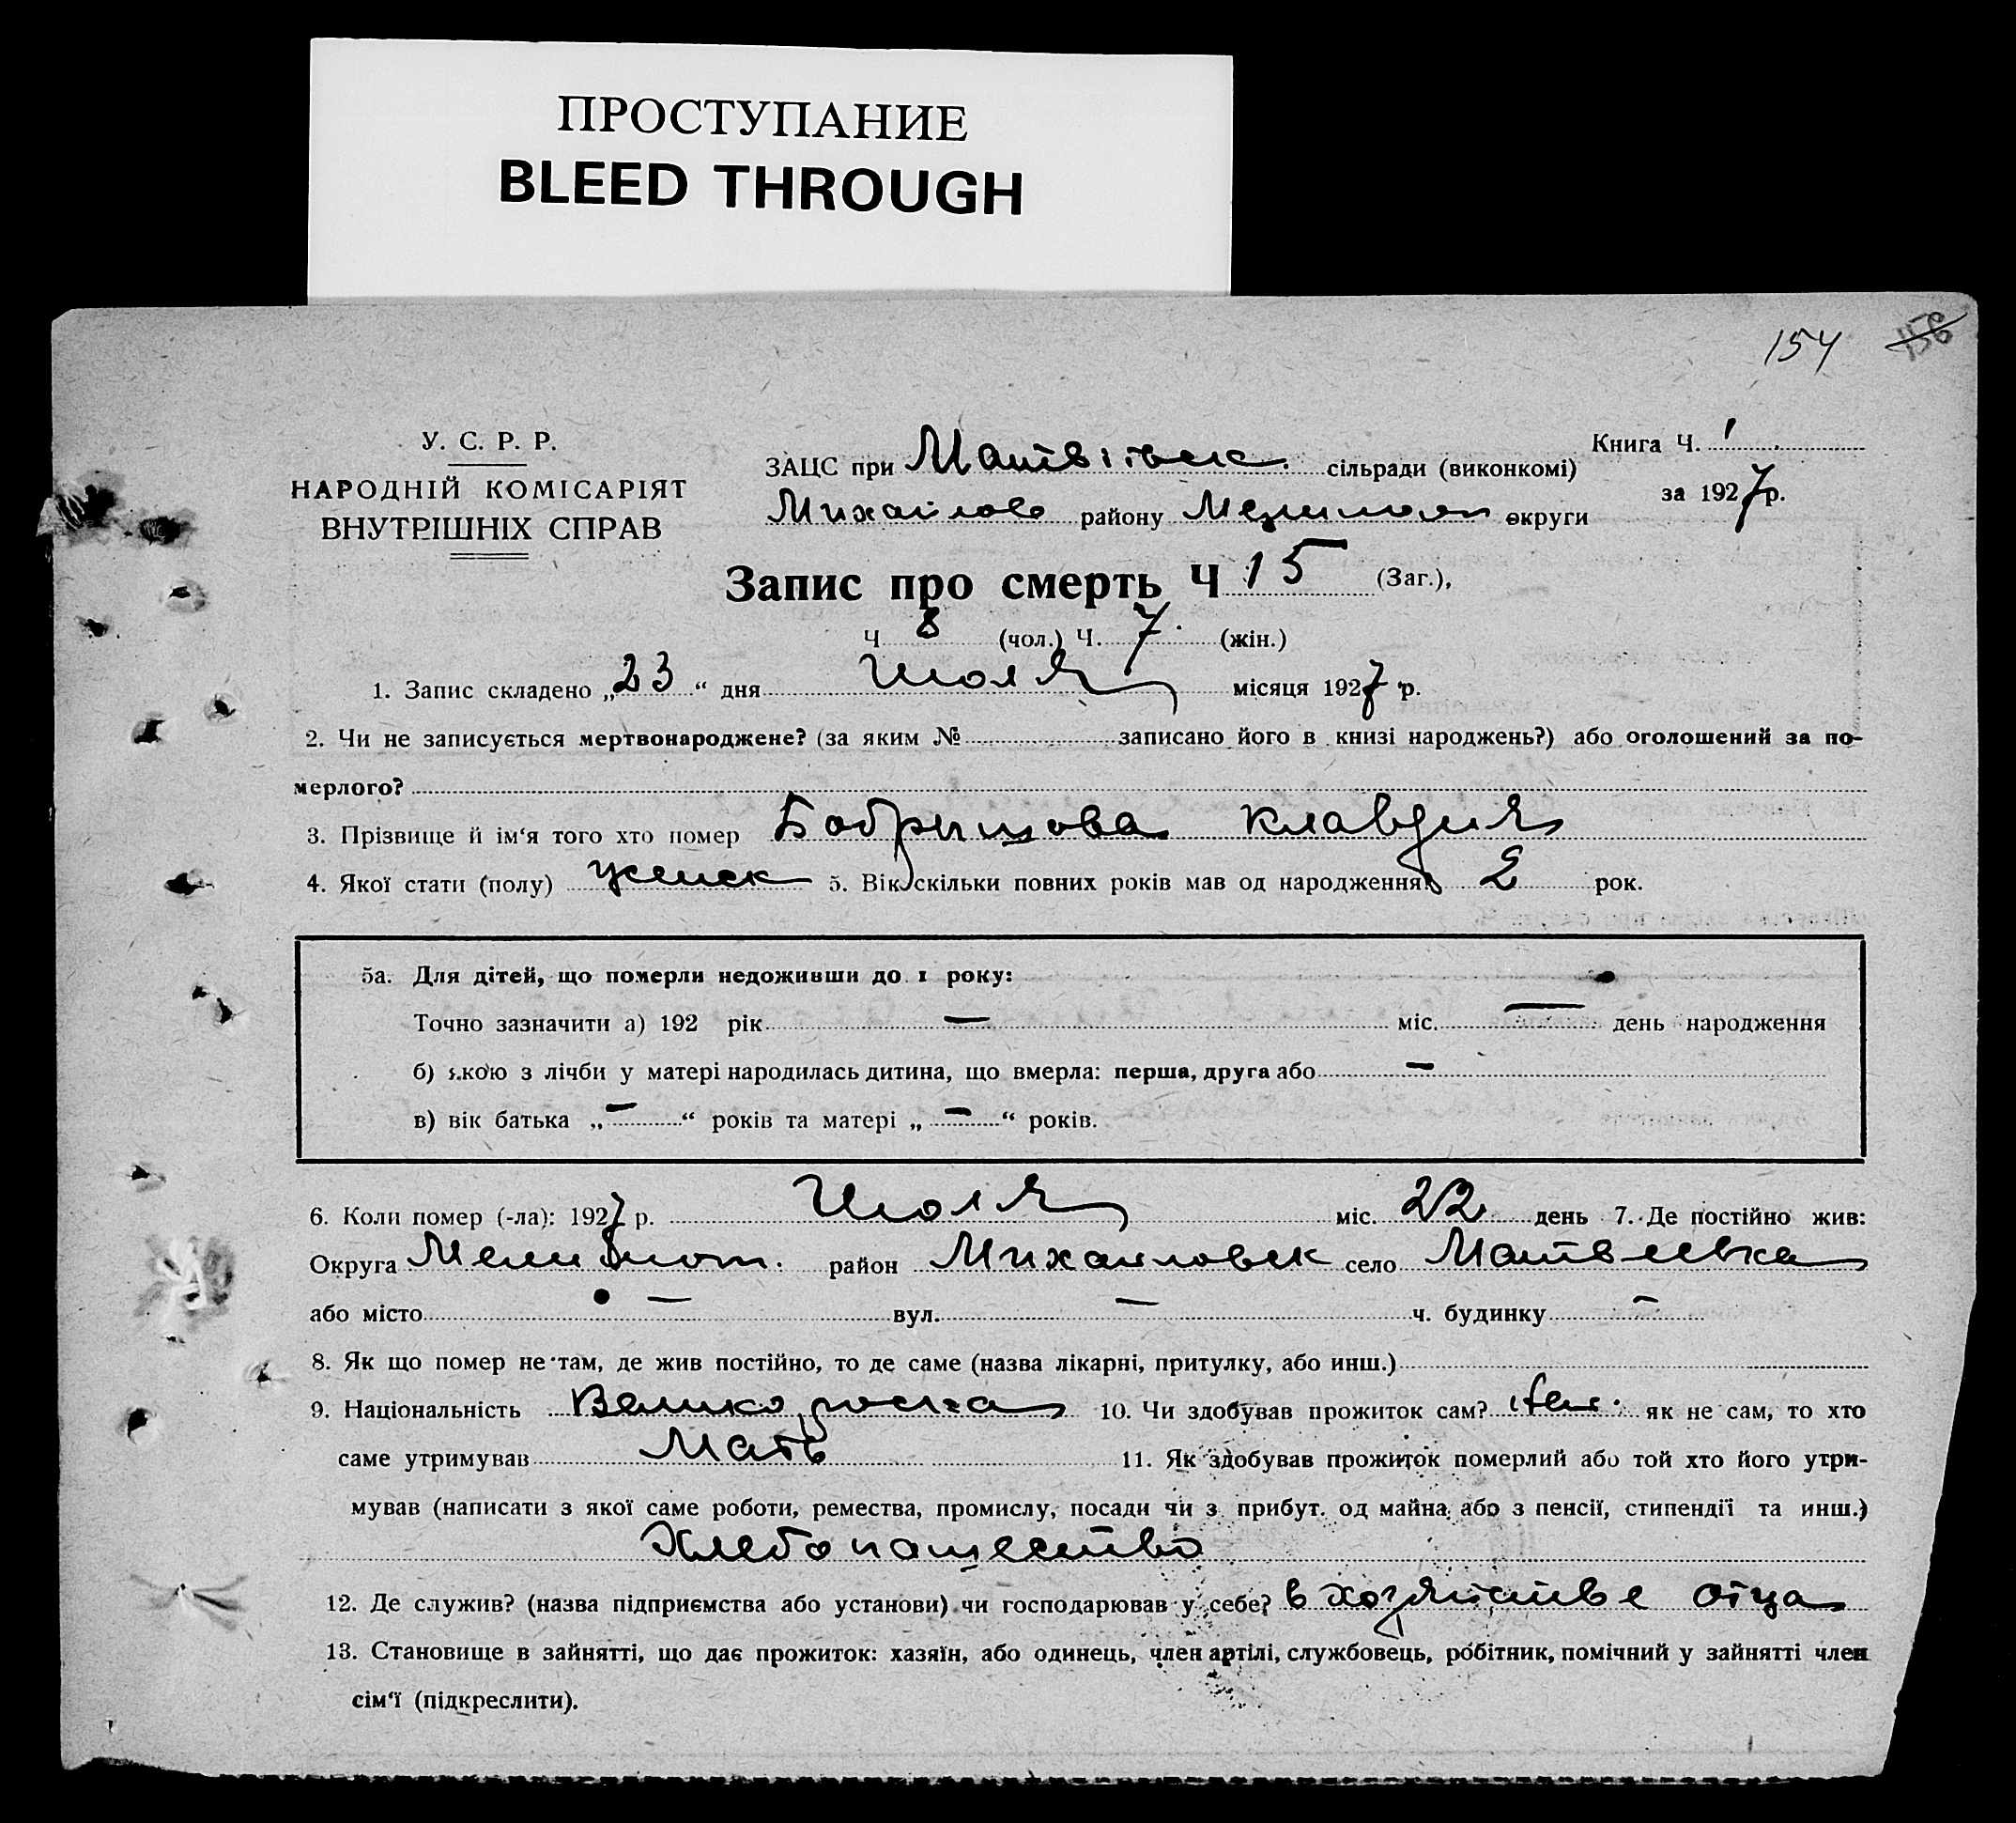 ПРОСТУПАНИЕ
BLEED THROUGH
154 156
У. С. Р. Р.
НАРОДНІЙ КОМІСАРІЯТ
ВНУТРІШНІХ СПРАВ
ЗАЦС при Матвіівск. сільради (виконкомі)
Михайлово району округи
Книга Ч. 1
за 1927 р.
Запис про смерть Ч 15 (Заг.),
Ч 8 (чол.) Ч. 7. (жін.)
1. Запис складено „23“ дня Июля місяця 1927 р.
2. Чи не записується мертвонароджене? (за яким № записано його в книзі народжень?) або оголошений за по-
мерлого?
3. Прізвище й ім‘я того хто помер Бобрышова Клавдия
4. Якої стати (полу) женск 5. Вік, скільки повних років мав од народження 2 рок.
5а. Для дітей, що померли недоживши до 1 року:
Точно зазначити а) 192 рік — міс. — день народження
б) якою з лічби у матері народилась дитина, що вмерла: перша, друга або —
в) вік батька „—“ років та матері „—“ років.
6. Коли помер (-ла): 1927 р. Июля міс. 22 день 7. Де постійно жив:
Округа Мелитот. район Михайловск село Матвеевка
або місто — вул. — ч. будинку —
8. Як що помер не там, де жив постійно, то де саме (назва лікарні, притулку, або инш.)
9. Національність Великороска 10. Чи здобував прожиток сам? Нет. як не сам, то хто
саме утримував Мать 11. Як здобував прожиток померлий або той хто його утри-
мував (написати з якої саме роботи, ремества, промислу, посади чи з прибут. од майна, або з пенсії, стипендії та инш.)
Хлебопашество
12. Де служив? (назва підприємства або установи) чи господарював у себе? в хозяйстве отца
13. Становище в зайнятті, що дає прожиток: хазяїн, або одинець, член артілі, службовець, робітник, помічний у зайнятті член
сім‘ї (підкреслити).